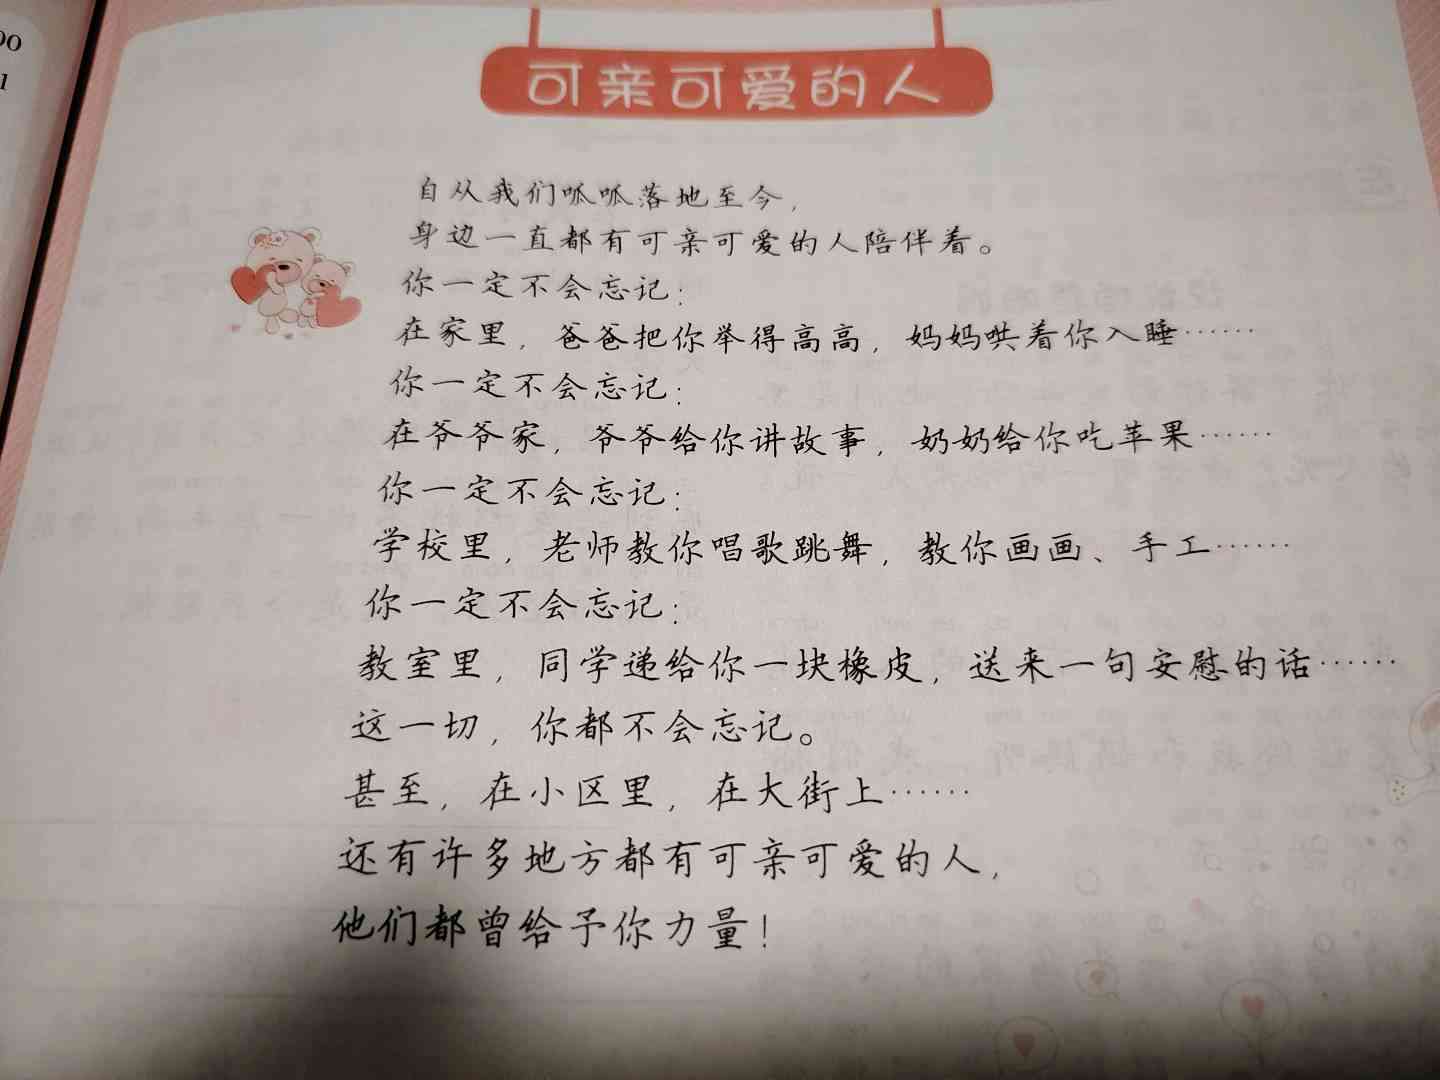 可亲可爱的人
自从我们呱呱落地至今，
身边一直都有可亲可爱的人陪伴着。
你一定不会忘记：
在家里，爸爸把你举得高高，妈妈哄着你入睡……
你一定不会忘记：
在爷爷家，爷爷给你讲故事，奶奶给你吃苹果……
你一定不会忘记：
学校里，老师教你唱歌跳舞，教你画画、手工……
你一定不会忘记：
教室里，同学递给你一块橡皮，送来一句安慰的话……
这一切，你都不会忘记。
甚至，在小区里，在大街上……
还有许多地方都有可亲可爱的人，
他们都曾给予你力量！